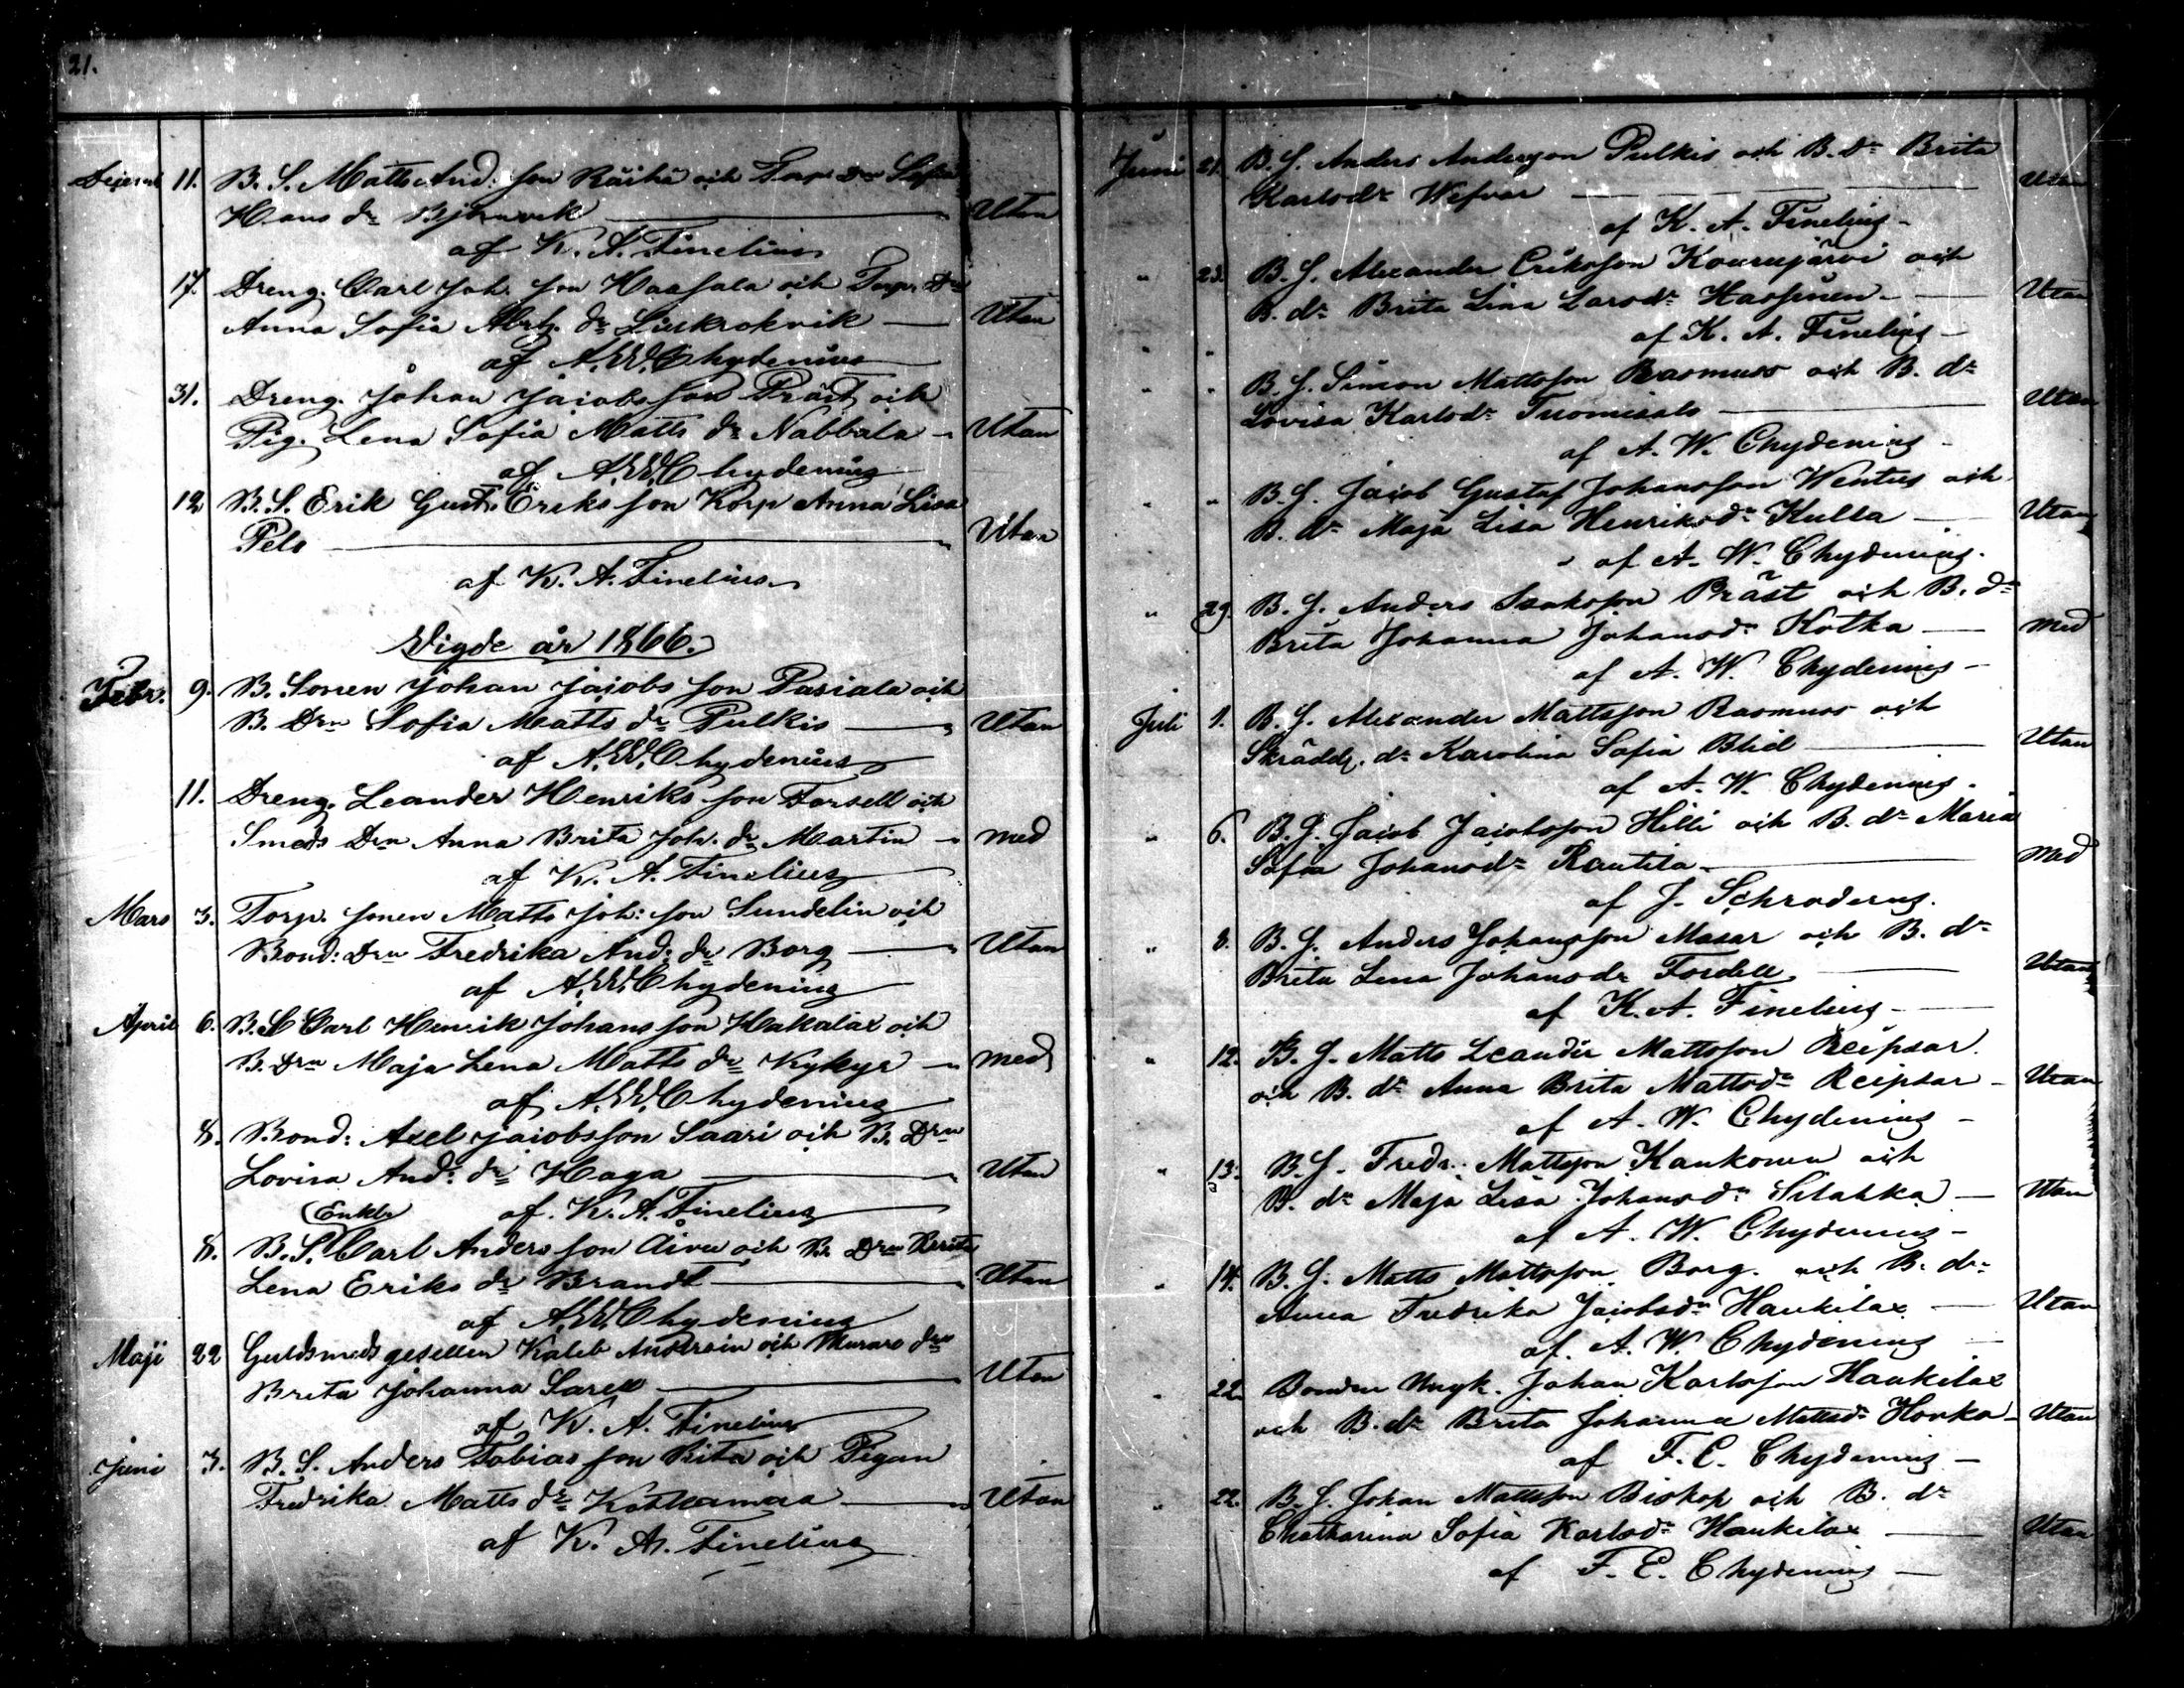 21.
Decemb 11. B. S. Matts And: son Räihä och Torp Drn Sofia
Hans dr Björnvik — Utan
af K. A. Finelius
17. Dreng. Carl Joh. son Haasala och Torp. Drn
Anna Sofia Mrtz. dr — Utan
af A. W. Chydenius
31. Dreng. Johan Jacobsson Präst och
Pig. Lena Sofia Matts dr Nabbala — Utan
af A. W. Chydenius
12 B. S. Erik Gust. Eriksson Korp Anna Lisa
Pelo — Utan
af K. A. Finelius
Vigde år 1866.
Febr. 9. B. Sonen Johan Jacobsson Pasiala och
B. Drn Sofia Matts dr Pulkis — Utan
af A. W. Chydenius
11. Dreng. Leander Henriksson Forsell och
Smeds Drn Anna Brita Joh. dr Martin — med
af K. A. Finelius
Mars 3. Torp. sonen Matts Joh: son Sundelin och
Bond: Drn Fredrika And: dr Borg — Utan
af A. W. Chydenius
April 6. B. S. Carl Henrik Johansson Hakalax och
B. Drn Maja Lena Matts dr Kykyr — med
af A. W. Chydenius
8. Bond: Axel Jacobsson Saari och B. Drn
Lovisa And: dr Haga — Utan
Enkl. af K. A. Finelius
8. B. S. Carl Andersson och B. Drn Brita
Lena Eriks dr Brandt — Utan
af A. W. Chydenius
Maji 22 Guldsmedsgesellen Kaleb och Murare drn
Brita Johanna Sarell — Utan
af K. A. Finelius
Juni 3. B. S. Anders Tobiasson Rita och Pigan
Fredrika Matts dr Kotkamaa — Utan
af K. A. Finelius
Juni 21. B. S. Anders Andersson Pulkis och B. Dr Brita
Karlsdr Wefvar — Utan
af K. A. Finelius —
" 23. B. S. Alexander Eriksson Kourujärvi och
B. dr Brita Lisa Larsdr Hassinen — Utan
af K. A. Finelius —
" " B. S. Simon Mattsson Rasmus och B. dr
Lovisa Karlsdr Tuomisalo — Utan
af A. W. Chydenius —
" " B. S. Jacob Gustaf Johansson Wentus och
B. dr Maja Lisa Henriksdr Kulla — Utan
af A. W. Chydenius.
" 29. B. S. Anders Isaksson Präst och B. dr
Brita Johanna Johansdr Kotka — med
af A. W. Chydenius —
Juli 1. B. S. Alexander Mattsson Rasmus och
Skrädd. dr Karolina Sofia Blid — Utan
af A. W. Chydenius.
" 6. B. S. Jacob Jacobsson Hilli och B. dr Maria
Sofia Johansdr Rautila — med
af J. Schroderus.
" 8. B. S. Anders Johansson Masar och B. dr
Brita Lena Johansdr Fordell — Utan
af K. A. Finelius —
" 12. B. S. Matts Leander Mattsson Reipsar
och B. dr Anna Brita Mattsdr Reipsar — Utan
af A. W. Chydenius —
" 13. B. S. Fredr. Mattsson Kankonen och
B. dr Maja Lisa Johansdr Silahka — Utan
af A. W. Chydenius —
" 14. B. S. Matts Mattsson Borg. och B. dr
Anna Fredrika Jacobsdr Haukilax — Utan
af A. W. Chydenius —
" 22. Bonden Ungk. Johan Karlsson Haukilax
och B. dr Brita Johanna Mattsdr Honka — Utan
af F. E. Chydenius —
" 22. B. S. Johan Mattsson Biskop och B. dr
Chatharina Sofia Karlsdr Haukilax — Utan
af F. E. Chydenius —